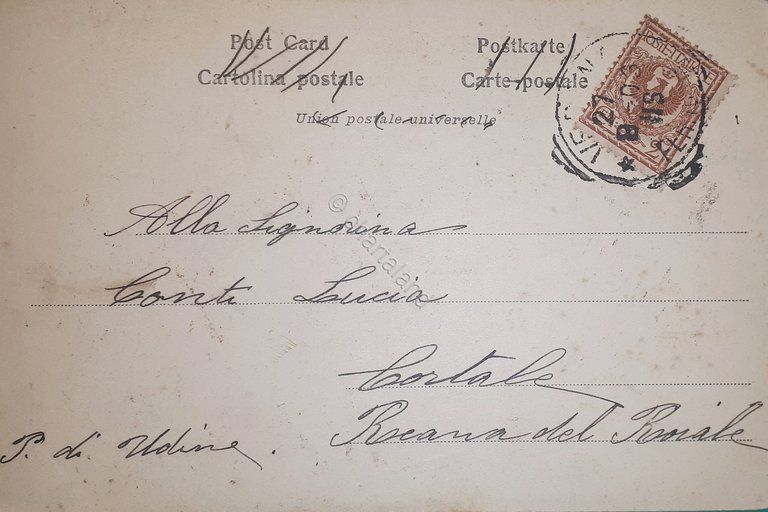 Post Card
Postkarte
Cartolina postale
Carte postale
Union postale universelle
POSTE ITALIANE
27
8
03
Alla Signorina
Conti Lucia
Cortale
Reana del Roiale
P. di Udine.